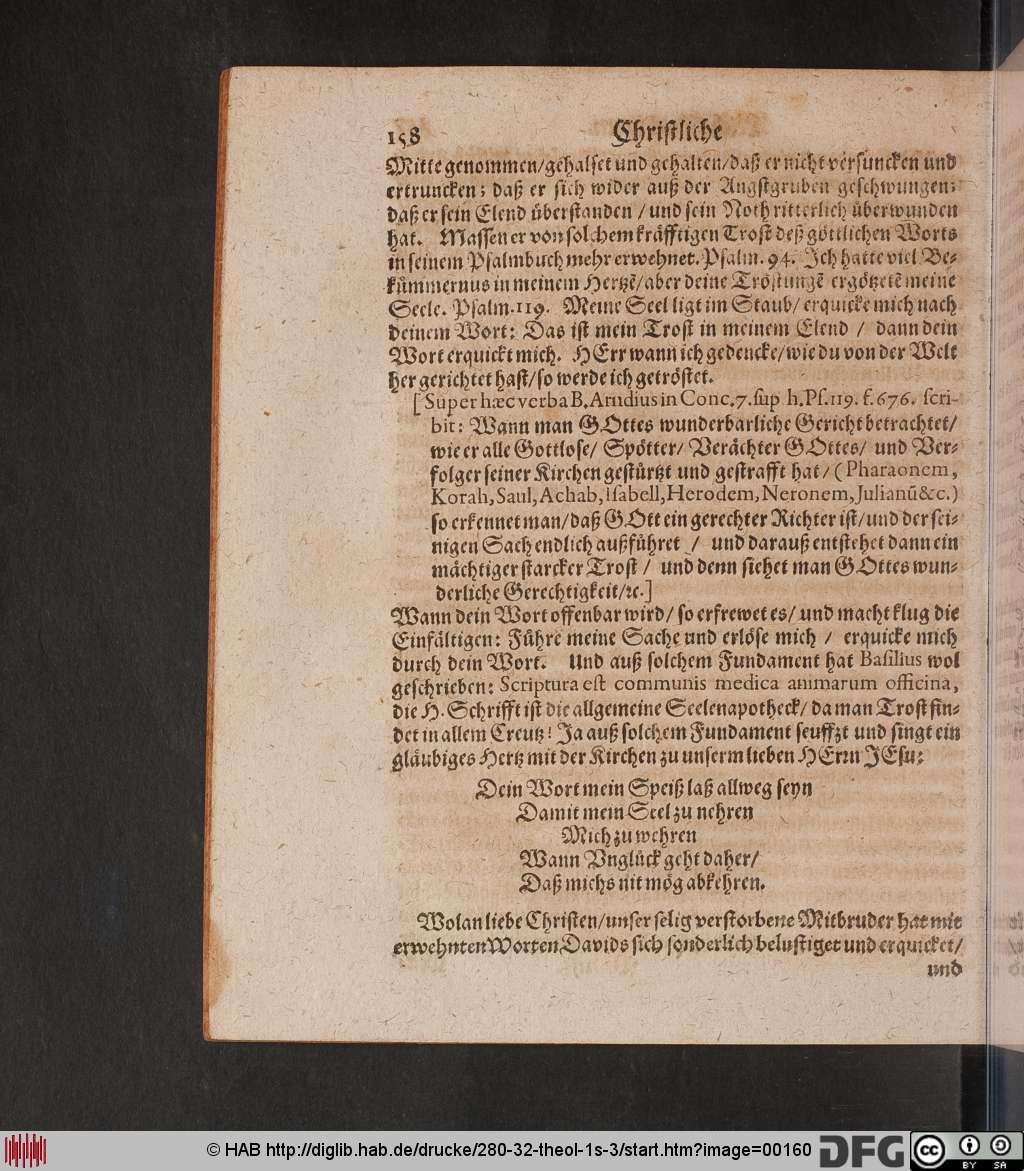 158 Christliche
Mitte genommen/gehalset und gehalten/daß er nicht versuncken und
ertruncken; daß er sich wider auß der Angstgruben geschwungen;
daß er sein Elend überstanden / und sein Noth ritterlich überwunden
hat. Massen er von solchem kräfftigen Trost deß göttlichen Worts
in seinem Psalmbuch mehr erwehnet. Psalm. 94. Ich hatte viel Be-
kümmernus in meinem Hertzē/aber deine Tröstungē ergötzetē meine
Seele. Psalm. 119. Meine Seel ligt im Staub/ erquicke mich nach
deinem Wort: Das ist mein Trost in meinem Elend / dann dein
Wort erquickt mich. HErr wann ich gedencke/wie du von der Welt
her gerichtet hast/so werde ich getröstet.
[Super hæc verba B. Arndius in Conc. 7. sup h. Ps. 119. f. 676. scri-
bit: Wann man GOttes wunderbarliche Gericht betrachtet/
wie er alle Gottlose/ Spötter/ Verächter GOttes/ und Ver-
folger seiner Kirchen gestürtzt und gestrafft hat/ (Pharaonem,
Korah, Saul, Achab, Isabell, Herodem, Neronem, Julianū &c.)
so erkennet man/daß GOtt ein gerechter Richter ist/und der sei-
nigen Sach endlich außführet / und darauß entstehet dann ein
mächtiger starcker Trost / und denn siehet man GOttes wun-
derliche Gerechtigkeit/ꝛc.]
Wann dein Wort offenbar wird/ so erfrewet es/ und macht klug die
Einfältigen: Führe meine Sache und erlöse mich / erquicke mich
durch dein Wort. Und auß solchem Fundament hat Basilius wol
geschrieben: Scriptura est communis medica animarum officina,
die H. Schrifft ist die allgemeine Seelenapotheck/ da man Trost fin-
det in allem Creutz! Ja auß solchem Fundament seuffzt und singt ein
gläubiges Hertz mit der Kirchen zu unserm lieben HErrn JEsu:
Dein Wort mein Speiß laß allweg seyn
Damit mein Seel zu nehren
Mich zu wehren
Wann Vnglück geht daher/
Daß michs nit mög abkehren.
Wolan liebe Christen/unser selig verstorbene Mitbruder hat mit
erwehnten Worten Davids sich sonderlich belustiget und erquicket/
und
© HAB http://diglib.hab.de/drucke/280-32-theol-1s-3/start.htm?image=00160 DFG cc BY SA